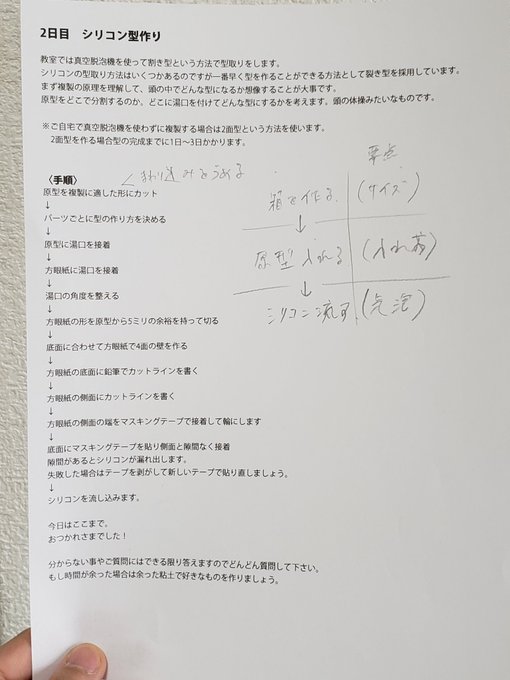 2日目 シリコン型作り
教室では真空脱泡機を使って割き型という方法で型取りをします。
シリコンの型取り方法はいくつかあるのですが一番早く型を作ることができる方法として裂き型を採用しています。
まず複製の原理を理解して、頭の中でどんな型になるか想像することが大事です。
原型をどこで分割するのか。どこに湯口を付けてどんな型にするかを考えます。頭の体操みたいなものです。
※ご自宅で真空脱泡機を使わずに複製する場合は2面型という方法を使います。
2面型を作る場合型の完成までに1日〜3日かかります。
〈手順〉
まわり込みをうめる
原型を複製に適した形にカット
↓
パーツごとに型の作り方を決める
↓
原型に湯口を接着
↓
方眼紙に湯口を接着
↓
湯口の角度を整える
↓
方眼紙の形を原型から5ミリの余裕を持って切る
↓
底面に合わせて方眼紙で4面の壁を作る
↓
方眼紙の底面に鉛筆でカットラインを書く
↓
方眼紙の側面にカットラインを書く
↓
方眼紙の側面の端をマスキングテープで接着して輪にします
↓
底面にマスキングテープを貼り側面と隙間なく接着
隙間があるとシリコンが漏れ出します。
失敗した場合はテープを剥がして新しいテープで貼り直しましょう。
↓
シリコンを流し込みます。
今日はここまで。
おつかれさまでした！
分からない事やご質問にはできる限り答えますのでどんどん質問して下さい。
もし時間が余った場合は余った粘土で好きなものを作りましょう。
要点
箱を作る (サイズ)
↓
原型入れる (入れ方)
↓
シリコン流す (気泡)